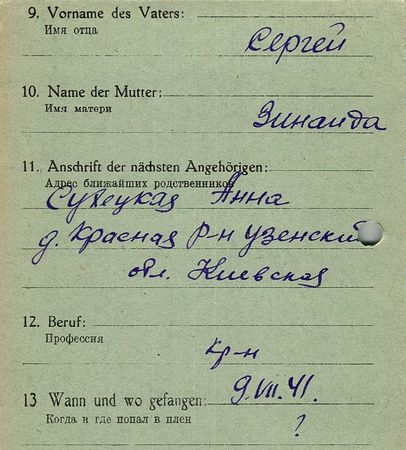 9. Vorname des Vaters:
Имя отца
Сергей
10. Name der Mutter:
Имя матери
Зинаида
11. Anschrift der nächsten Angehörigen:
Адрес ближайших родственников
Анна
д. Красная Р-н Узенский
обл. Киевская
12. Beruf:
Профессия
кр-н
13 Wann und wo gefangen: 9.VII.41.
Когда и где попал в плен ?